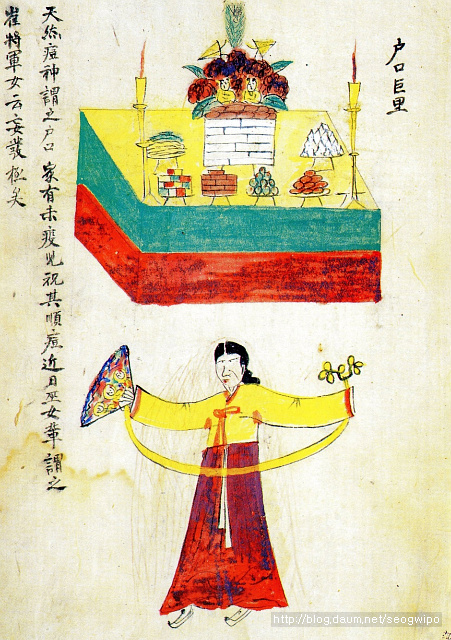 户口巨里
天然痘神謂之户口 家有未疫児祝其順痘近日巫女輩 謂之
崔將軍女云妄發極矣
http://blog.daum.net/seogwipo